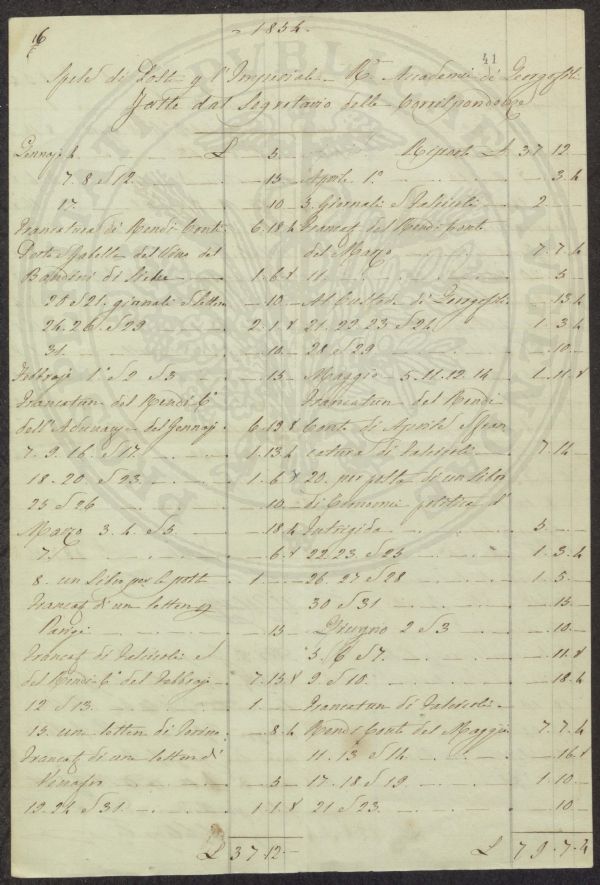 16
1854.
41
Spese di Posta p l'Imperiale R. Accademia de Georgofili
fatte dal Segretario delle Corrispondenze
Gennajo 4 £ 5
7. 8 e 12 15
17 10
Francatura di Rendi Conti 6.18.4
Bandini di Siche 1.6.8
20 e 21. giornali e lettere 10
24. 26. e 29 2.1.8
31 10
Febbrajo 1° e 2 e 3 15
Francatura del Rendi C°
dell'Adunanza del Gennajo 6.13.8
7. 9. 16. e 17. 1.13.4
18. 20. e 23. 1.6.8
25 e 26 10
Marzo 3. 4. e 5 18.4
7 6.8
8. un libro per la posta 1
Francat. di una lettera p
Parigi 15
Francat. di fascicoli e
del Rendi C° del Febbrajo 7.13.8
12 e 13 1
15. una lettera di Torino 8.4
Francat. di una lettera di
Venafro 5
19. 24 e 31 1.1.8
£ 37.12
Riporto £ 37.12
Aprile 1° 3.4
3 Giornali e fascicoli 2
Francat. del Rendi Conti
del Marzo 7.7.4
11 5
Al Custode de Georgofili 13.4
21. 22. 23. e 24. 1.3.4
28 e 29 10
Maggio 5. 11. 12. 14 1.11.8
Francatura del Rendi
Conti di Aprile e fran
catura di fascicoli 7.14
20. per posta di un libro
di Economia politica d'
5
22. 23. e 25 1.3.4
26. 27 e 28 1.5
30 e 31 15
Giugno 2 e 3 10
5. 6 e 7. 11.8
9 e 10 18.4
Francatura di fascicoli
Rendi Conti del Maggio 7.7.4
11. 13 e 14 16.8
17. 18 e 19 1.10
21 e 23 10
£ 79.7.4